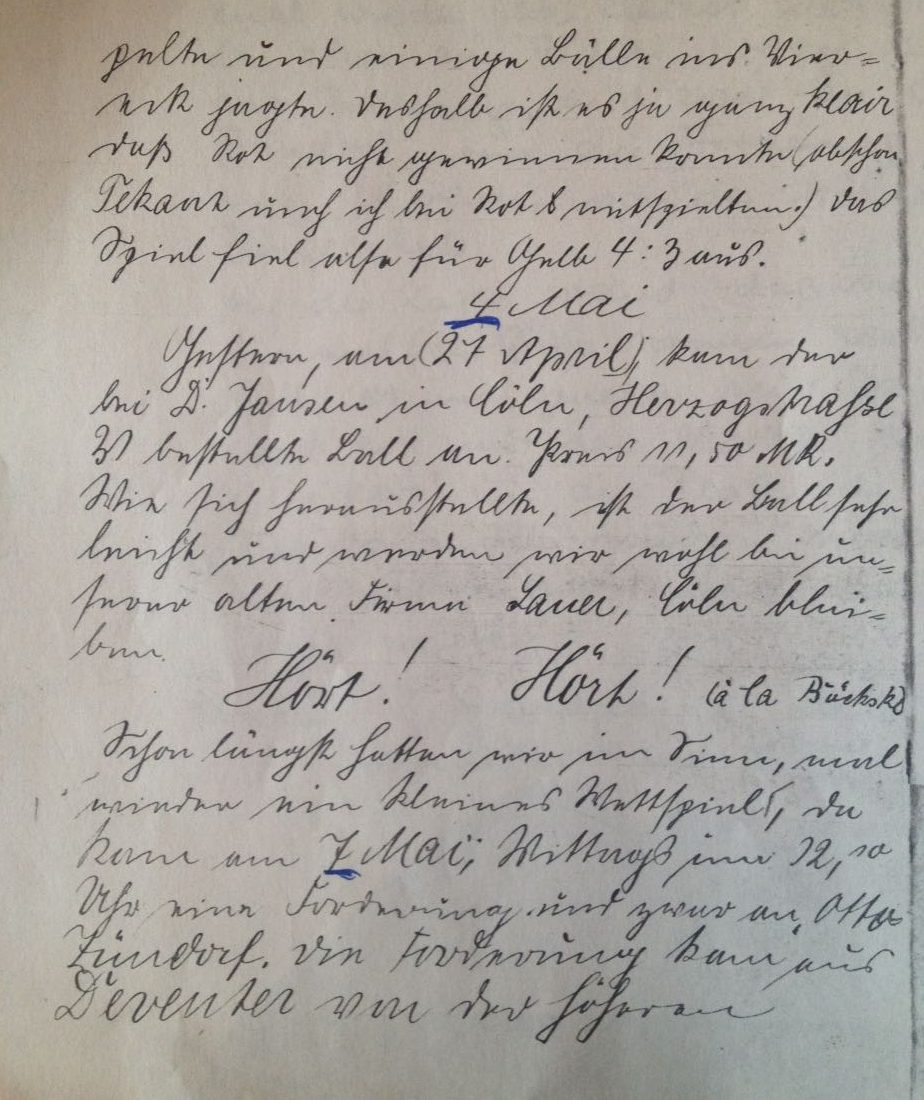 pelte und einige Bälle ins Vier=
eck jagte. Deshalb ist es ja ganz klar
daß Rot nicht gewinnen konnte (obschon
und ich bei Rot mitspielten.) Das
Spiel fiel also für Gelb 4:3 aus.
4 Mai
Gestern, am (27 April), kam der
bei D. Jansen in Cöln, Herzogstrasse
bestellte Ball an. Preis 11,50 MK.
Wie sich herausstellte, ist der Ball sehr
leicht und werden wir wohl bei un=
serer alten Firma Lauer, Cöln blei=
ben.
Hört! Hört! (à la
Schon längst hatten wir im Sinn, mal
wieder ein kleines Wettspiel, da
kam am 7 Mai, Mittags um 12,10
Uhr eine Forderung und zwar an Otto
Zündorf. Die Forderung kam aus
Deventer von der höheren